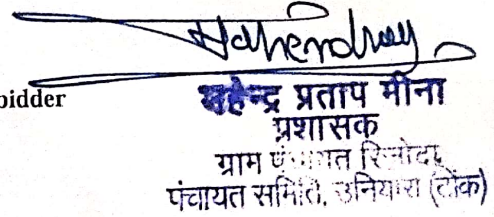 Mahendra
bidder
महेन्द्र प्रताप मीना
प्रशासक
ग्राम पंचायत
पंचायत समिति, उनियारा (टोंक)